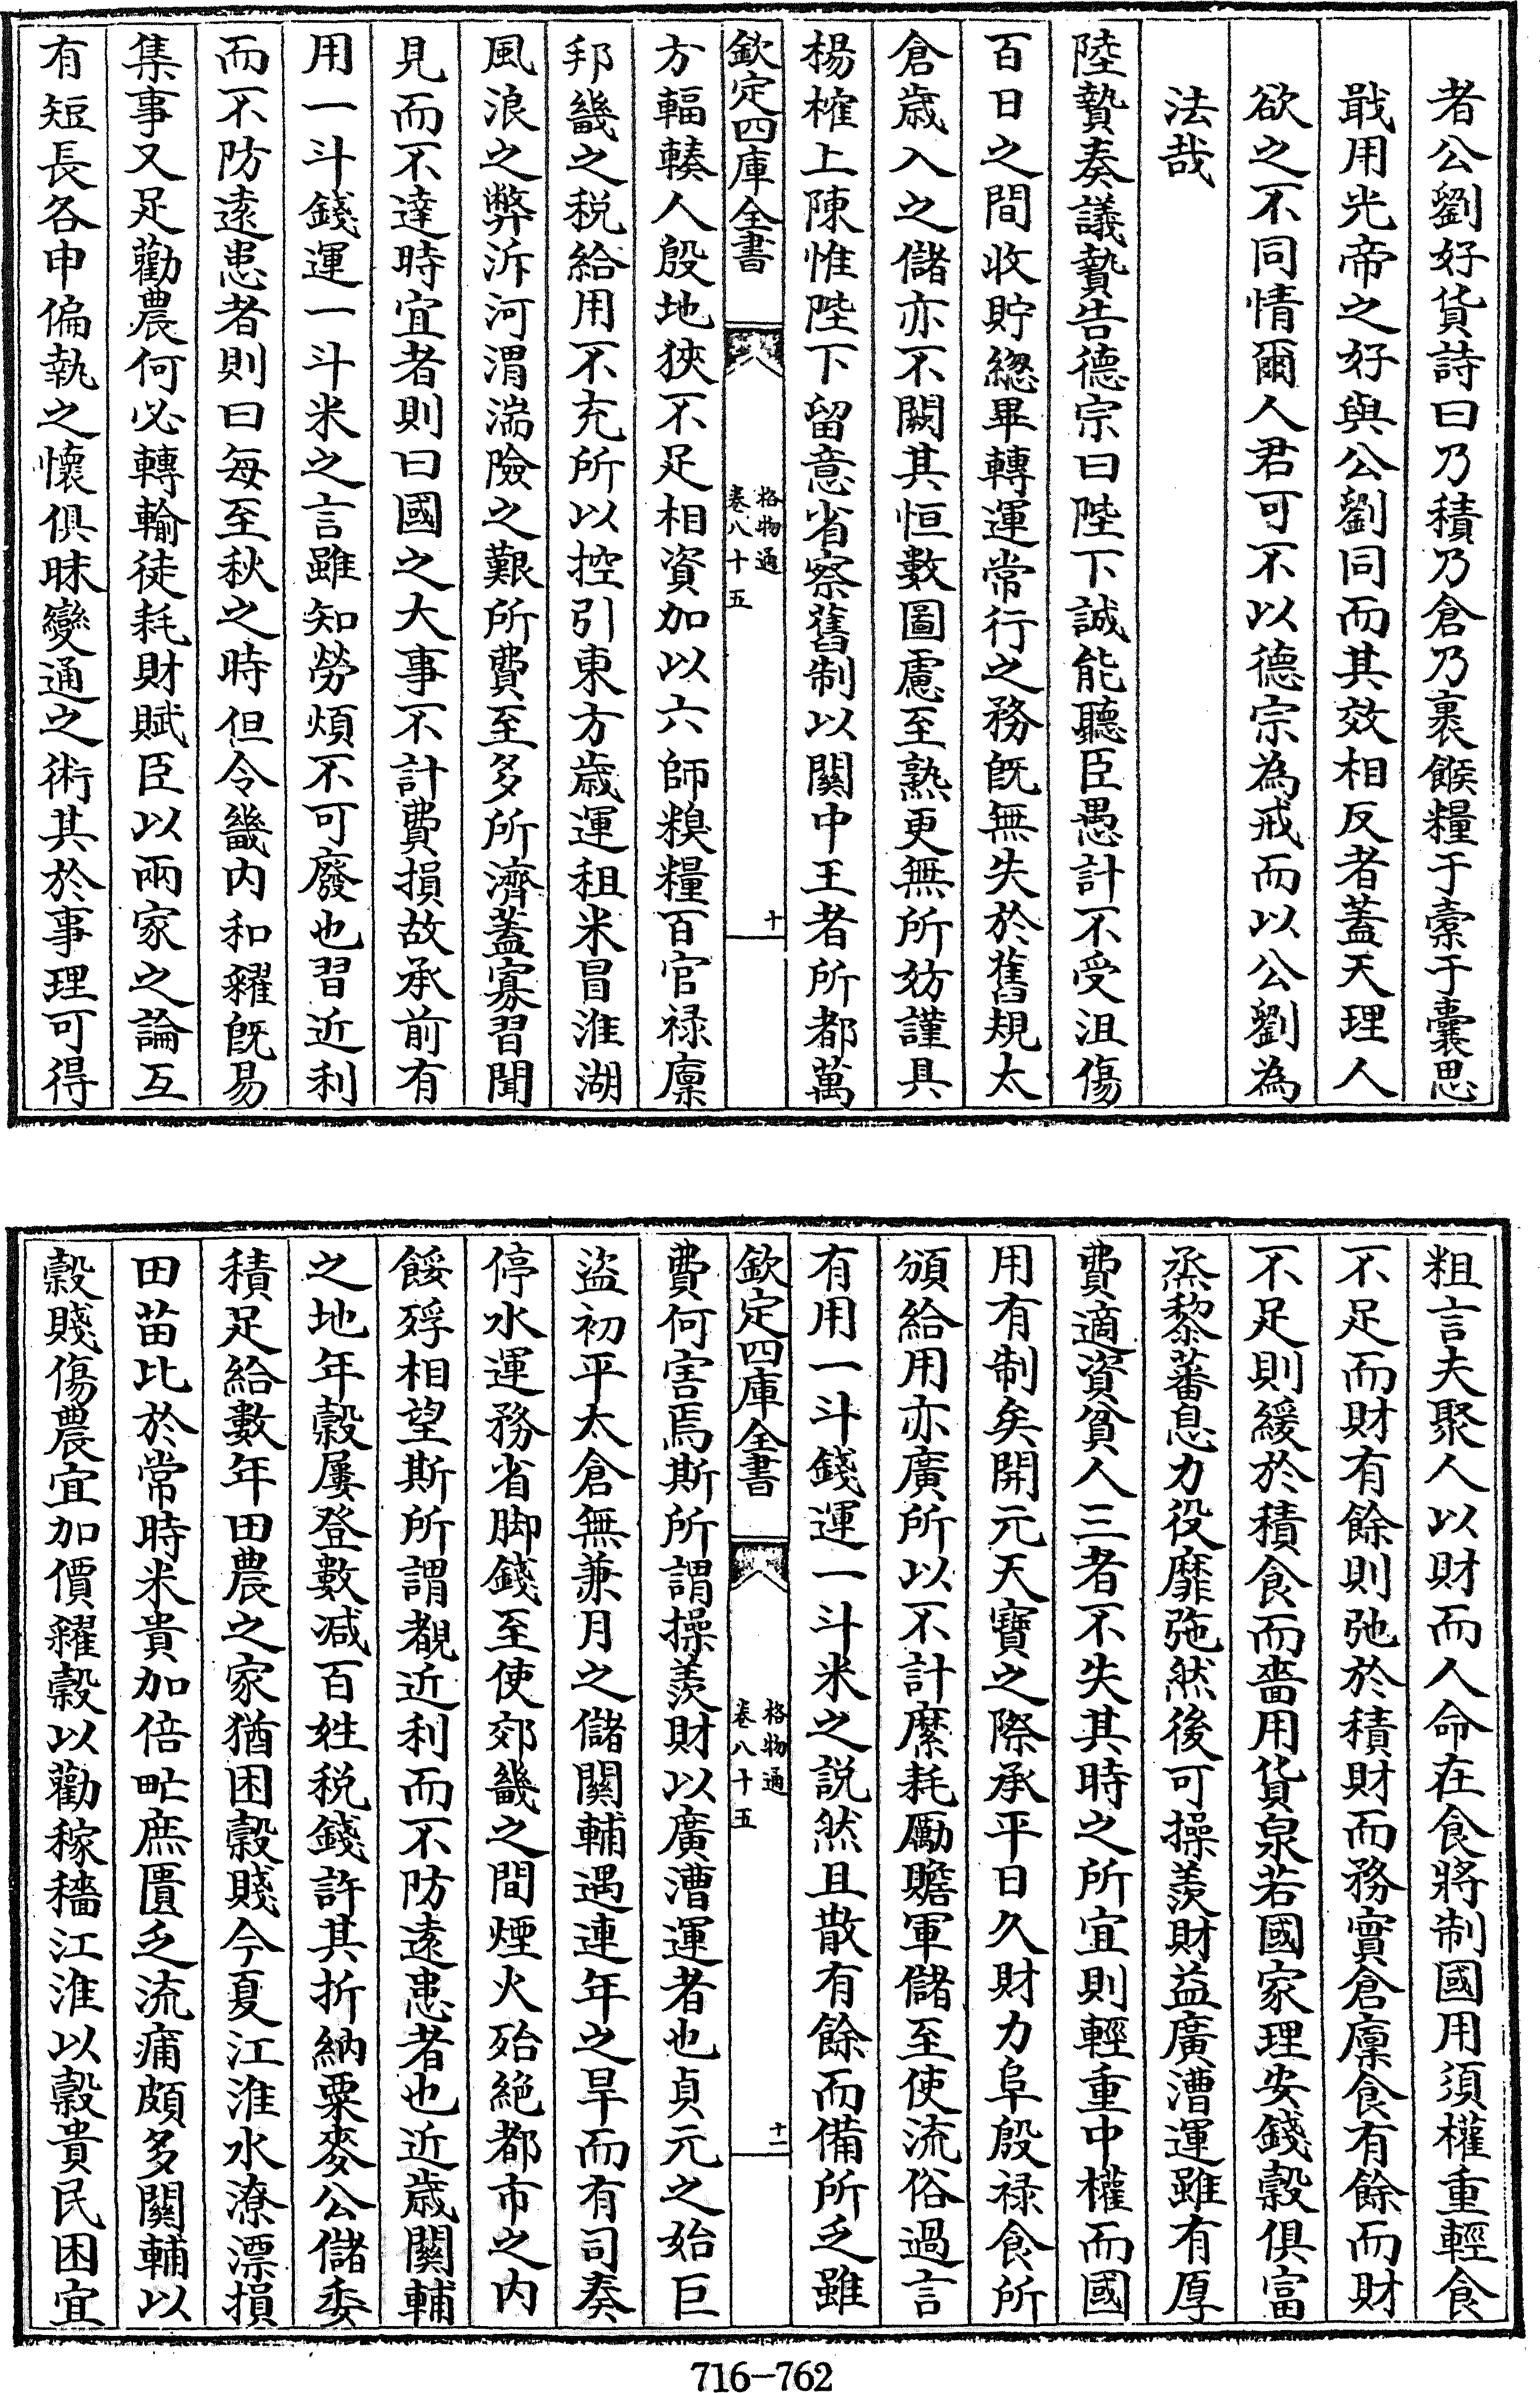 者公劉好貨詩曰乃積乃倉乃裹餱糧于橐于囊思
戢用光帝之好與公劉同而其效相反者蓋天理人
欲之不同情爾人君可不以德宗為戒而以公劉為
法哉
陸贄奏議贄告德宗曰陛下誠能聽臣愚計不受沮傷
百日之間收貯緫畢轉運常行之務旣無失於舊規太
倉歲入之儲亦不闕其恒數圖慮至熟更無所妨謹具
楊榷上陳惟陛下留意省察舊制以關中王者所都萬
欽定四庫全書
格物通
卷八十五
十
方輻輳人殷地狹不足相資加以六師糗糧百官祿廩
邦畿之稅給用不充所以控引東方歲運租米冒淮湖
風浪之弊泝河渭湍險之艱所費至多所濟蓋寡習聞
見而不達時宜者則曰國之大事不計費損故承前有
用一斗錢運一斗米之言雖知勞煩不可廢也習近利
而不防遠患者則曰每至秋之時但令畿内和糴旣易
集事又足勸農何必轉輸徒耗財賦臣以兩家之論互
有短長各申偏執之懷俱昧變通之術其於事理可得
粗言夫聚人以財而人命在食將制國用須權重輕食
不足而財有餘則弛於積財而務實倉廩食有餘而財
不足則緩於積食而嗇用貨泉若國家理安錢穀俱富
烝黎蕃息力役靡施然後可操羨財益廣漕運雖有厚
費適資貧人三者不失其時之所宜則輕重中權而國
用有制矣開元天寶之際承平日久財力阜殷祿食所
頒給用亦廣所以不計縻耗勵贍軍儲至使流俗過言
有用一斗錢運一斗米之説然且散有餘而備所乏雖
欽定四庫全書
格物通
卷八十五
十一
費何害焉斯所謂操羨財以廣漕運者也貞元之始巨
盜初平太倉無兼月之儲關輔遇連年之旱而有司奏
停水運務省脚錢至使郊畿之間煙火殆絶都市之内
餒殍相望斯所謂覩近利而不防遠患者也近歲關輔
之地年穀屢登數減百姓稅錢許其折納粟麥公儲委
積足給數年田農之家猶困穀賤今夏江淮水潦漂損
田苗比於常時米貴加倍甿庶匱乏流痡頗多關輔以
穀賤傷農宜加價糴穀以勸稼穡江淮以穀貴民困宜
716-762